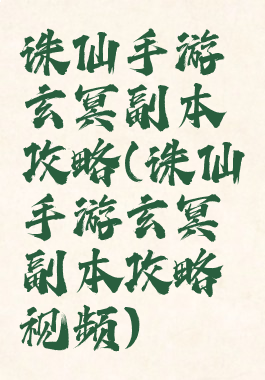 诛仙手游
玄冥副本
攻略(诛仙
手游玄冥
副本攻略
视频)